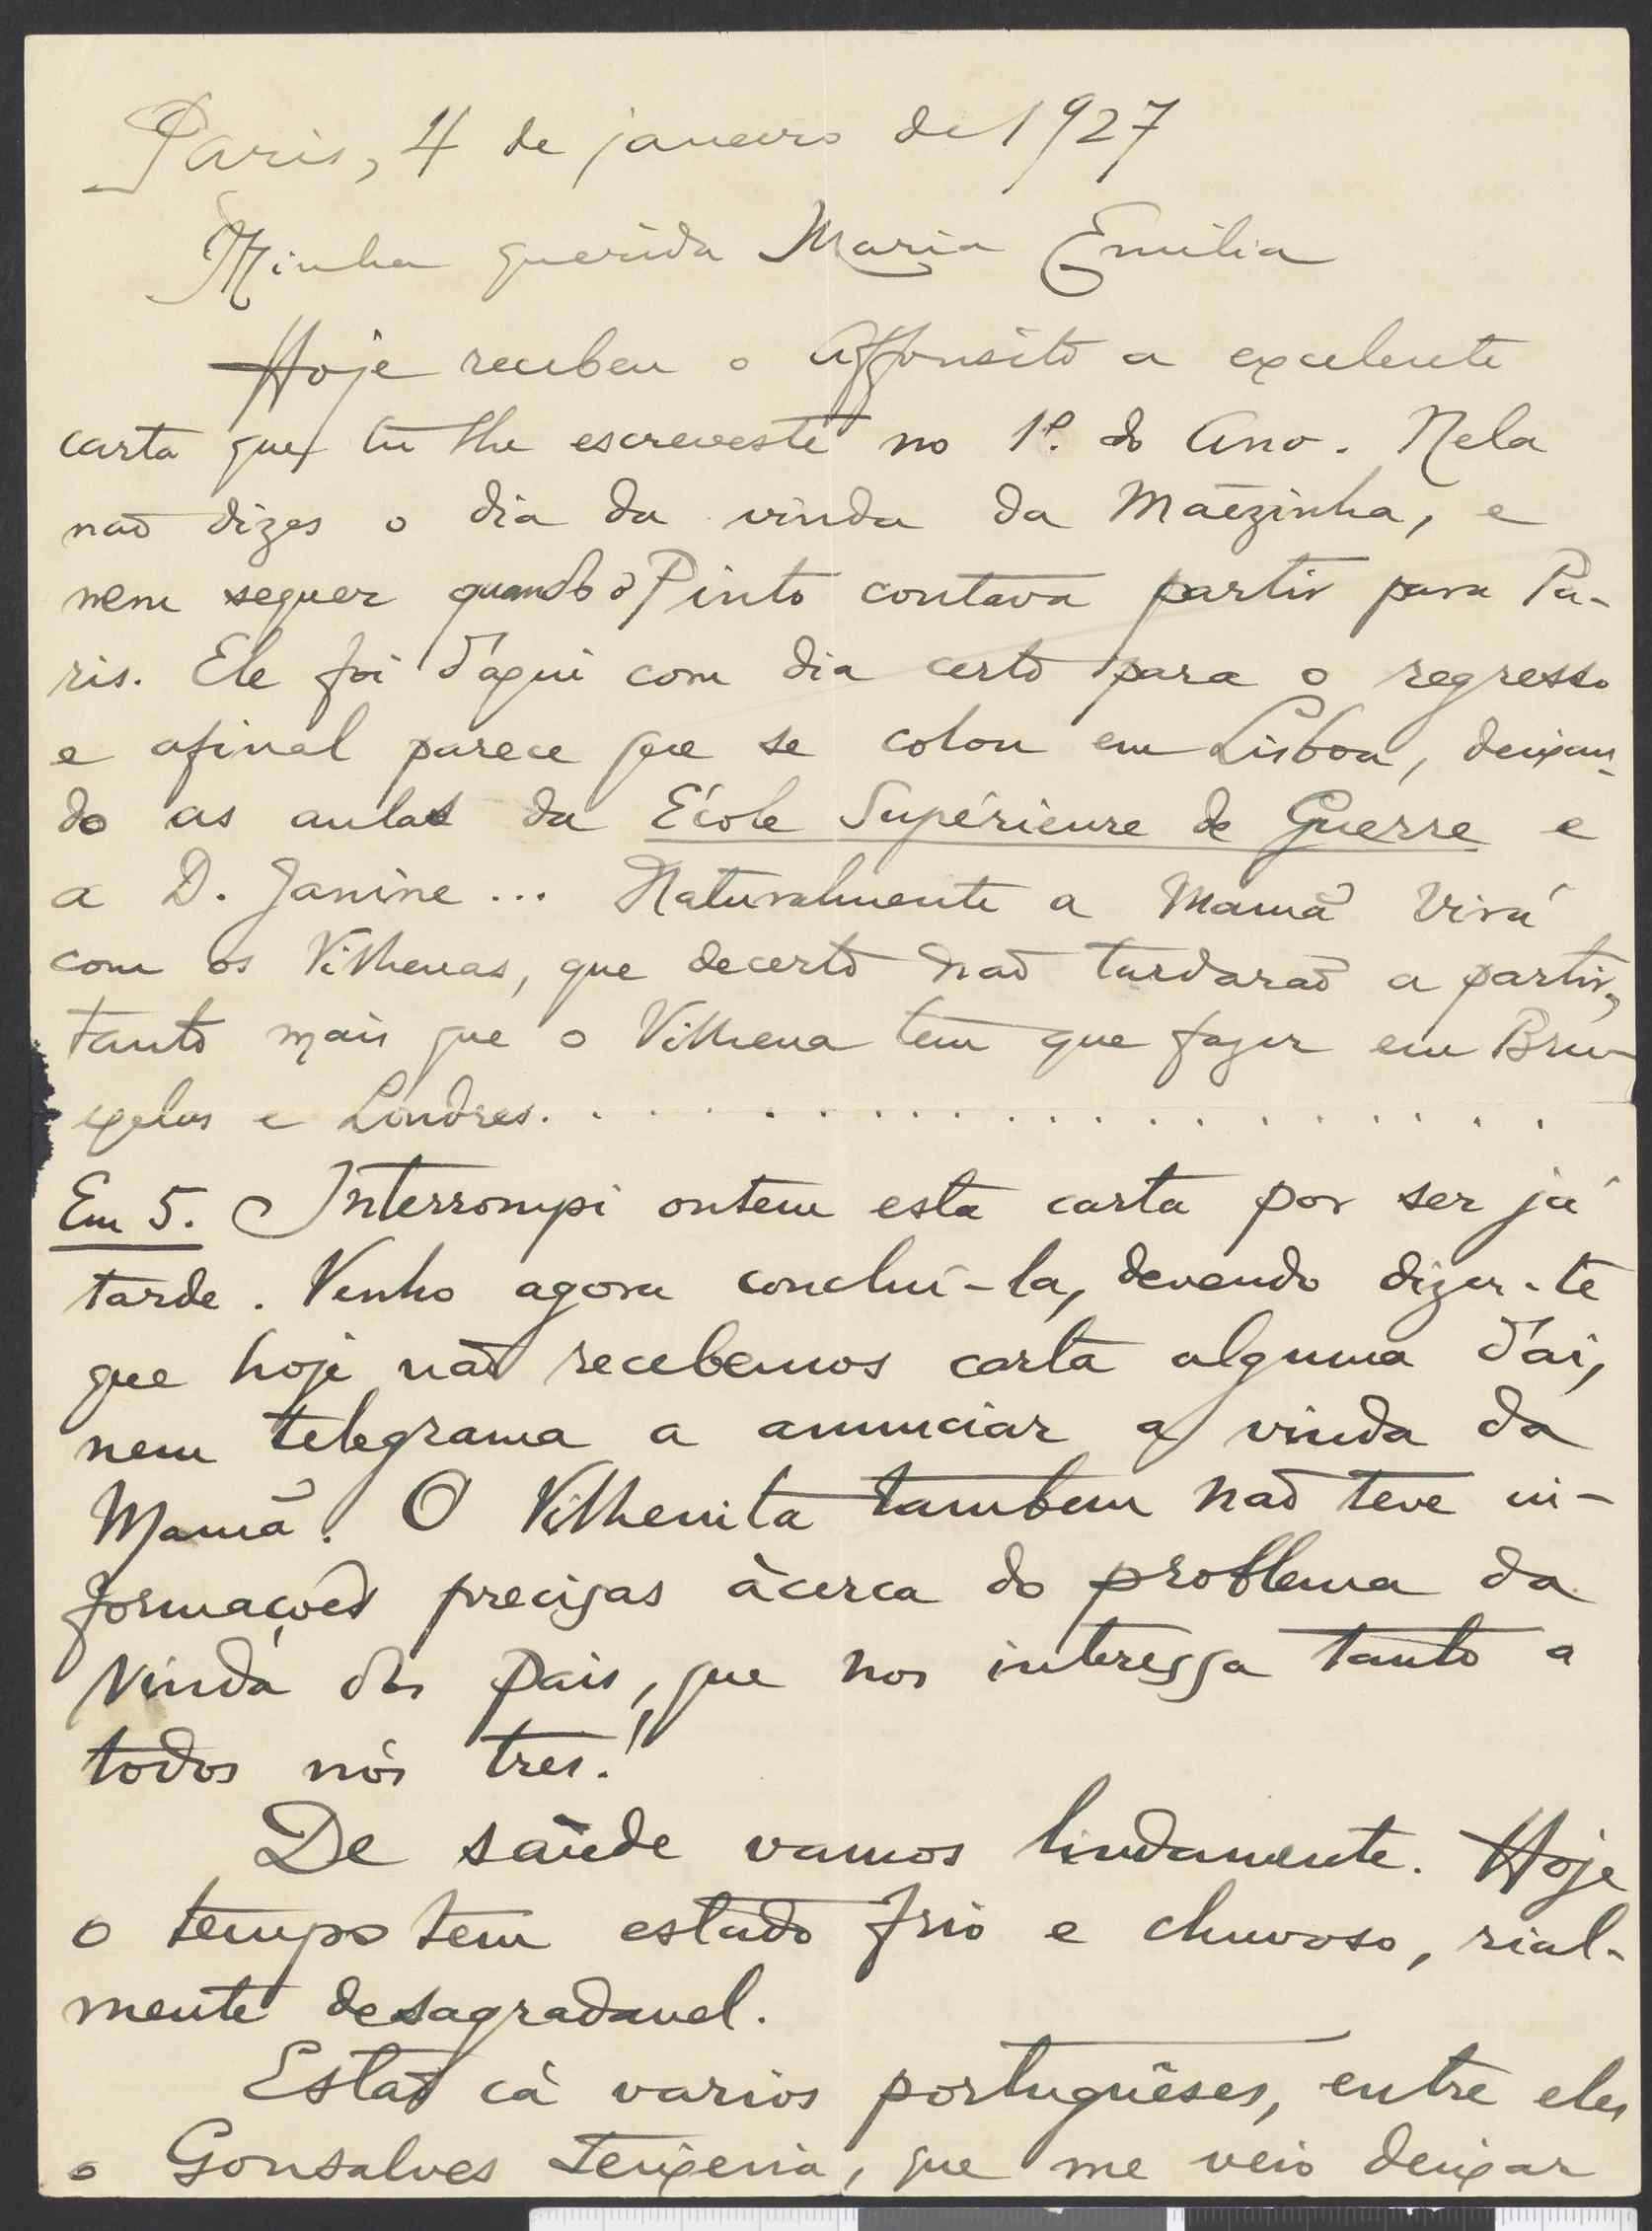 Paris, 4 de janeiro de 1927
Minha querida Maria Emilia
Hoje recebeu o Affonsito a excelente
carta que tu lhe escreveste no 1º. do Ano. Nela
não dizes o dia da vinda da Mãezinha, e
nem sequer quando o Pinto contava partir para Pa-
ris. Ele foi d'aqui com dia certo para o regresso
e afinal parece que se colou em Lisboa, deixan-
do as aulas da École Supérieure de Guerre e
a D. Janine ... Naturalmente a Mamã virá
com os Vilhenas, que decerto não tardarão a partir,
tanto mais que o Vilhena tem que fazer em Bru-
xelas e Londres. . . . . . . . . . . . . . . . . . .
Em 5. Interrompi ontem esta carta por ser já
tarde. Venho agora concluí-la, devendo dizer-te
que hoje não recebemos carta alguma d'aí,
nem telegrama a anunciar a vinda da
Mamã. O Vilhenita tambem não teve in-
formações precisas àcerca do problema da
vinda dos pais, que nos interessa tanto a
todos nós tres!
De saúde vamos lindamente. Hoje
o tempo tem estado frio e chuvoso, rial-
mente desagradavel.
Estão cá varios portuguêses, entre eles
o Gonsalves Teixeira, que me veio deixar